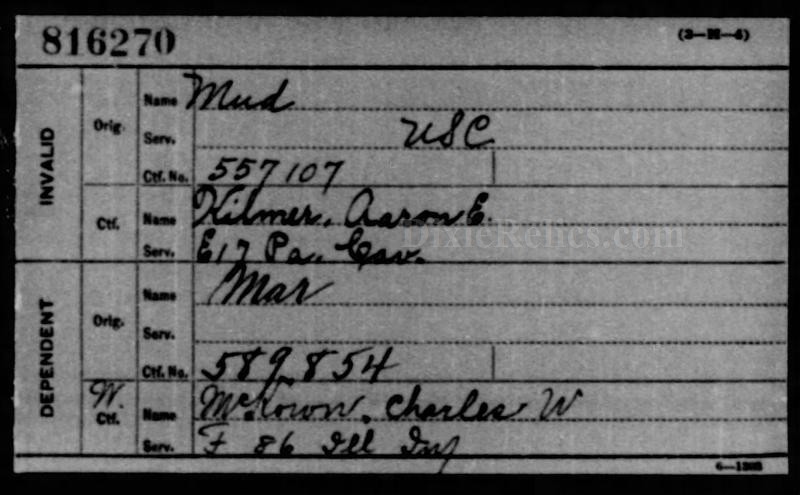 816270 (3-M-4)
INVALID
Orig. Name Mud
Serv. USC
Ctf. No. 557107
Ctf. Name Hilmer, Aaron E.
Serv. E 17 Pa. Cav.
DixieRelics.com
DEPENDENT
Orig. Name Mar
Serv.
Ctf. No. 589854
W. Ctf. Name McKown, Charles W
Serv. F 86 Ill Inf
6—1303